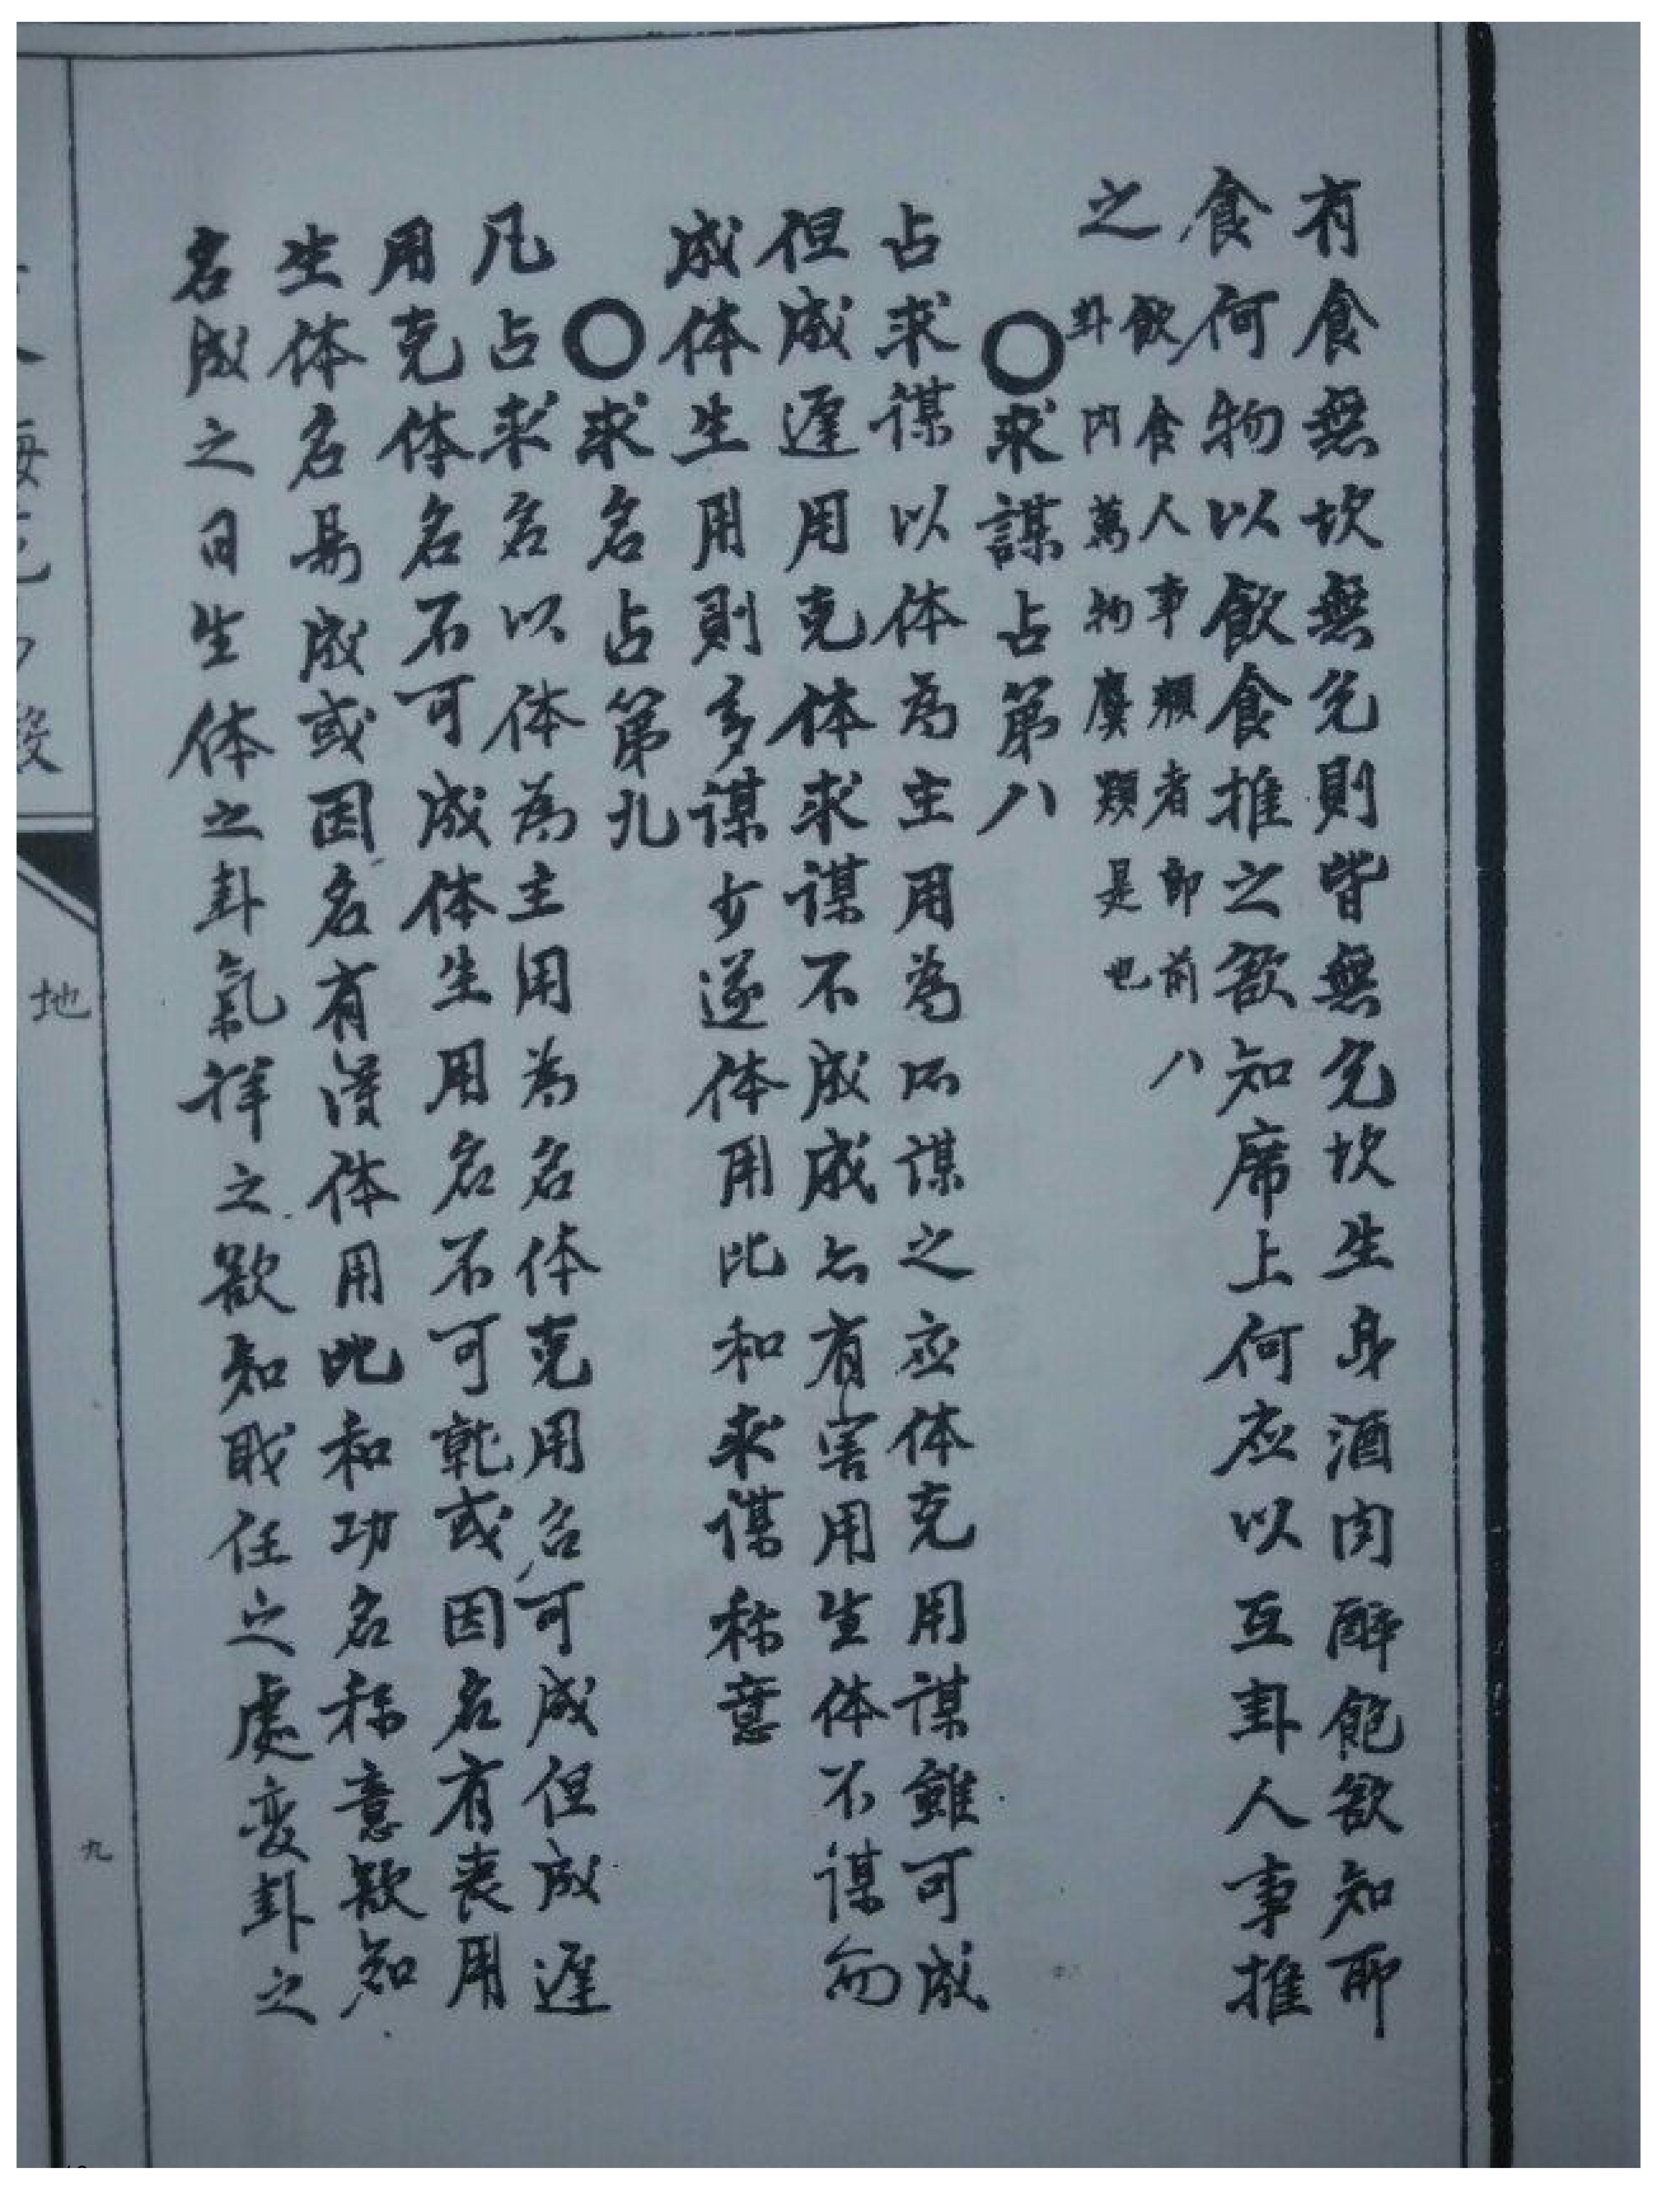 有食無坎無兌則皆無兌坎生身酒肉醉飽欲知所
食何物以飲食推之欲知席上何应以互卦人事推
之飲食人事類者即前八
卦內萬物屬類是也
〇求謀占第八
占求謀以体為主用為所謀之应体克用謀雖可成
但成遲用克体求謀不成成亦有害用生体不謀而
成体生用則多謀少遂体用比和求謀称意
〇求名占第九
凡占求名以体為主用為名体克用名可成但成遲
用克体名不可成体生用名不可乾或因名有丧用
生体名易成或因名有得体用比和功名称意欲知
名成之日生体之卦氣祥之欲知职任之處变卦之
地
九